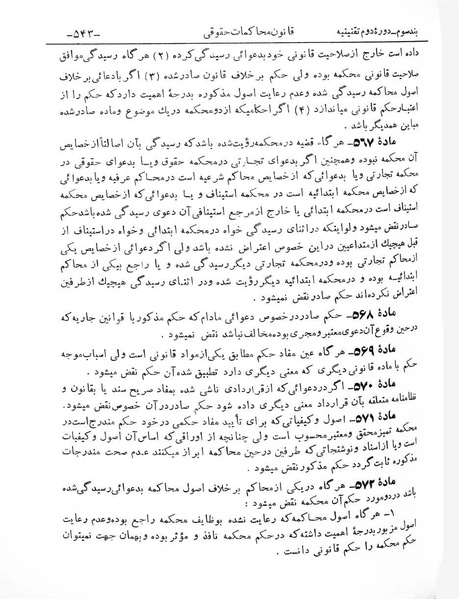 بندسوم_دورهٔ دوم تقنینیه قانون محاکمات حقوقی -۵۴۳-
داده است خارج از صلاحیت قانونی خود بدعوائی رسیدگی کرده (۲) هرگاه رسیدگی موافق
صلاحیت قانونی محکمه بوده ولی حکم برخلاف قانون صادر شده (۳) اگر بادعائی برخلاف
اصول محاکمه رسیدگی شده وعدم رعایت اصول مذکوره بدرجهٔ اهمیت دارد که حکم را از
اعتبار حکم قانونی میاندازد (۴) اگر احکامیکه ازدومحکمه دریك موضوع وماده صادرشده
مباین همدیگر باشد.
مادهٔ ۵۶۷- هرگاه قضیه در محکمه رؤیت شده باشد که رسیدگی بآن اصالتاً از خصایص
آن محکمه نبوده وهمچنین اگر بدعوای تجارتی درمحکمه حقوق ویا بدعوای حقوقی در
محکمه تجارتی ویا بدعوائی که ازخصایص محاکم شرعیه است درمحاکم عرفیه ویا بدعوائی
که ازخصایص محکمه ابتدائیه است در محکمه استیناف و یا بدعوائی که از خصایص محکمه
استیناف است درمحکمه ابتدائی یا خارج از مرجع استینافی آن دعوی رسیدگی شده باشد حکم
صادر نقض میشود ولو اینکه در اثنای رسیدگی خواه درمحکمه ابتدائی وخواه دراستیناف از
قبل هیچیك از متداعیین در این خصوص اعتراض نشده باشد ولی اگر دعوائی از خصایص یکی
از محاکم تجارتی بوده ودرمحکمه تجارتی دیگر رسیدگی شده و یا راجع بیکی از محاکم
ابتدائیه بوده و درمحکمه ابتدائیه دیگر رؤیت شده ودر اثنای رسیدگی هیچیك از طرفین
اعتراض نکرده‌اند حکم صادر نقض نمیشود.
مادهٔ ۵۶۸- حکم صادر درخصوص دعوائی مادام که حکم مذکور با قوانین جاریه که
درحین وقوع آن دعوی معتبر ومجری بوده مخالف نباشد نقض نمیشود.
مادهٔ ۵۶۹- هرگاه عین مفاد حکم مطابق یکی از مواد قانونی است ولی اسباب موجه
حکم با ماده قانونی دیگری که معنی دیگری دارد تطبیق شده آن حکم نقض میشود.
مادهٔ ۵۷۰- اگر در دعوائی که از قراردادی ناشی شده بمفاد صریح سند یا بقانون و
نظامنامه متعلقه بآن قرارداد معنی دیگری داده شود حکم صادر در آن خصوص نقض میشود.
مادهٔ ۵۷۱- اصول و کیفیاتی که برای تأیید مفاد حکمی درخود حکم مندرج است در
محکمه تمیز محقق ومعتبر محسوب است ولی چنانچه از اوراقی که اساس آن اصول و کیفیات
است ویا از اسناد ونوشتجاتی که طرفین درحین محاکمه ابراز میکنند عدم صحت مندرجات
مذکوره ثابت گردد حکم مذکور نقض میشود.
مادهٔ ۵۷۲- هرگاه در یکی از محاکم برخلاف اصول محاکمه بدعوائی رسیدگی شده
باشد در دو مورد حکم آن محکمه نقض میشود:
۱- هرگاه اصول محاکمه که رعایت نشده بوظایف محکمه راجع بوده وعدم رعایت
اصول مزبور بدرجهٔ اهمیت داشته که درحکم محکمه نافذ و مؤثر بوده وبهمان جهت نمیتوان
حکم محکمه را حکم قانونی دانست.